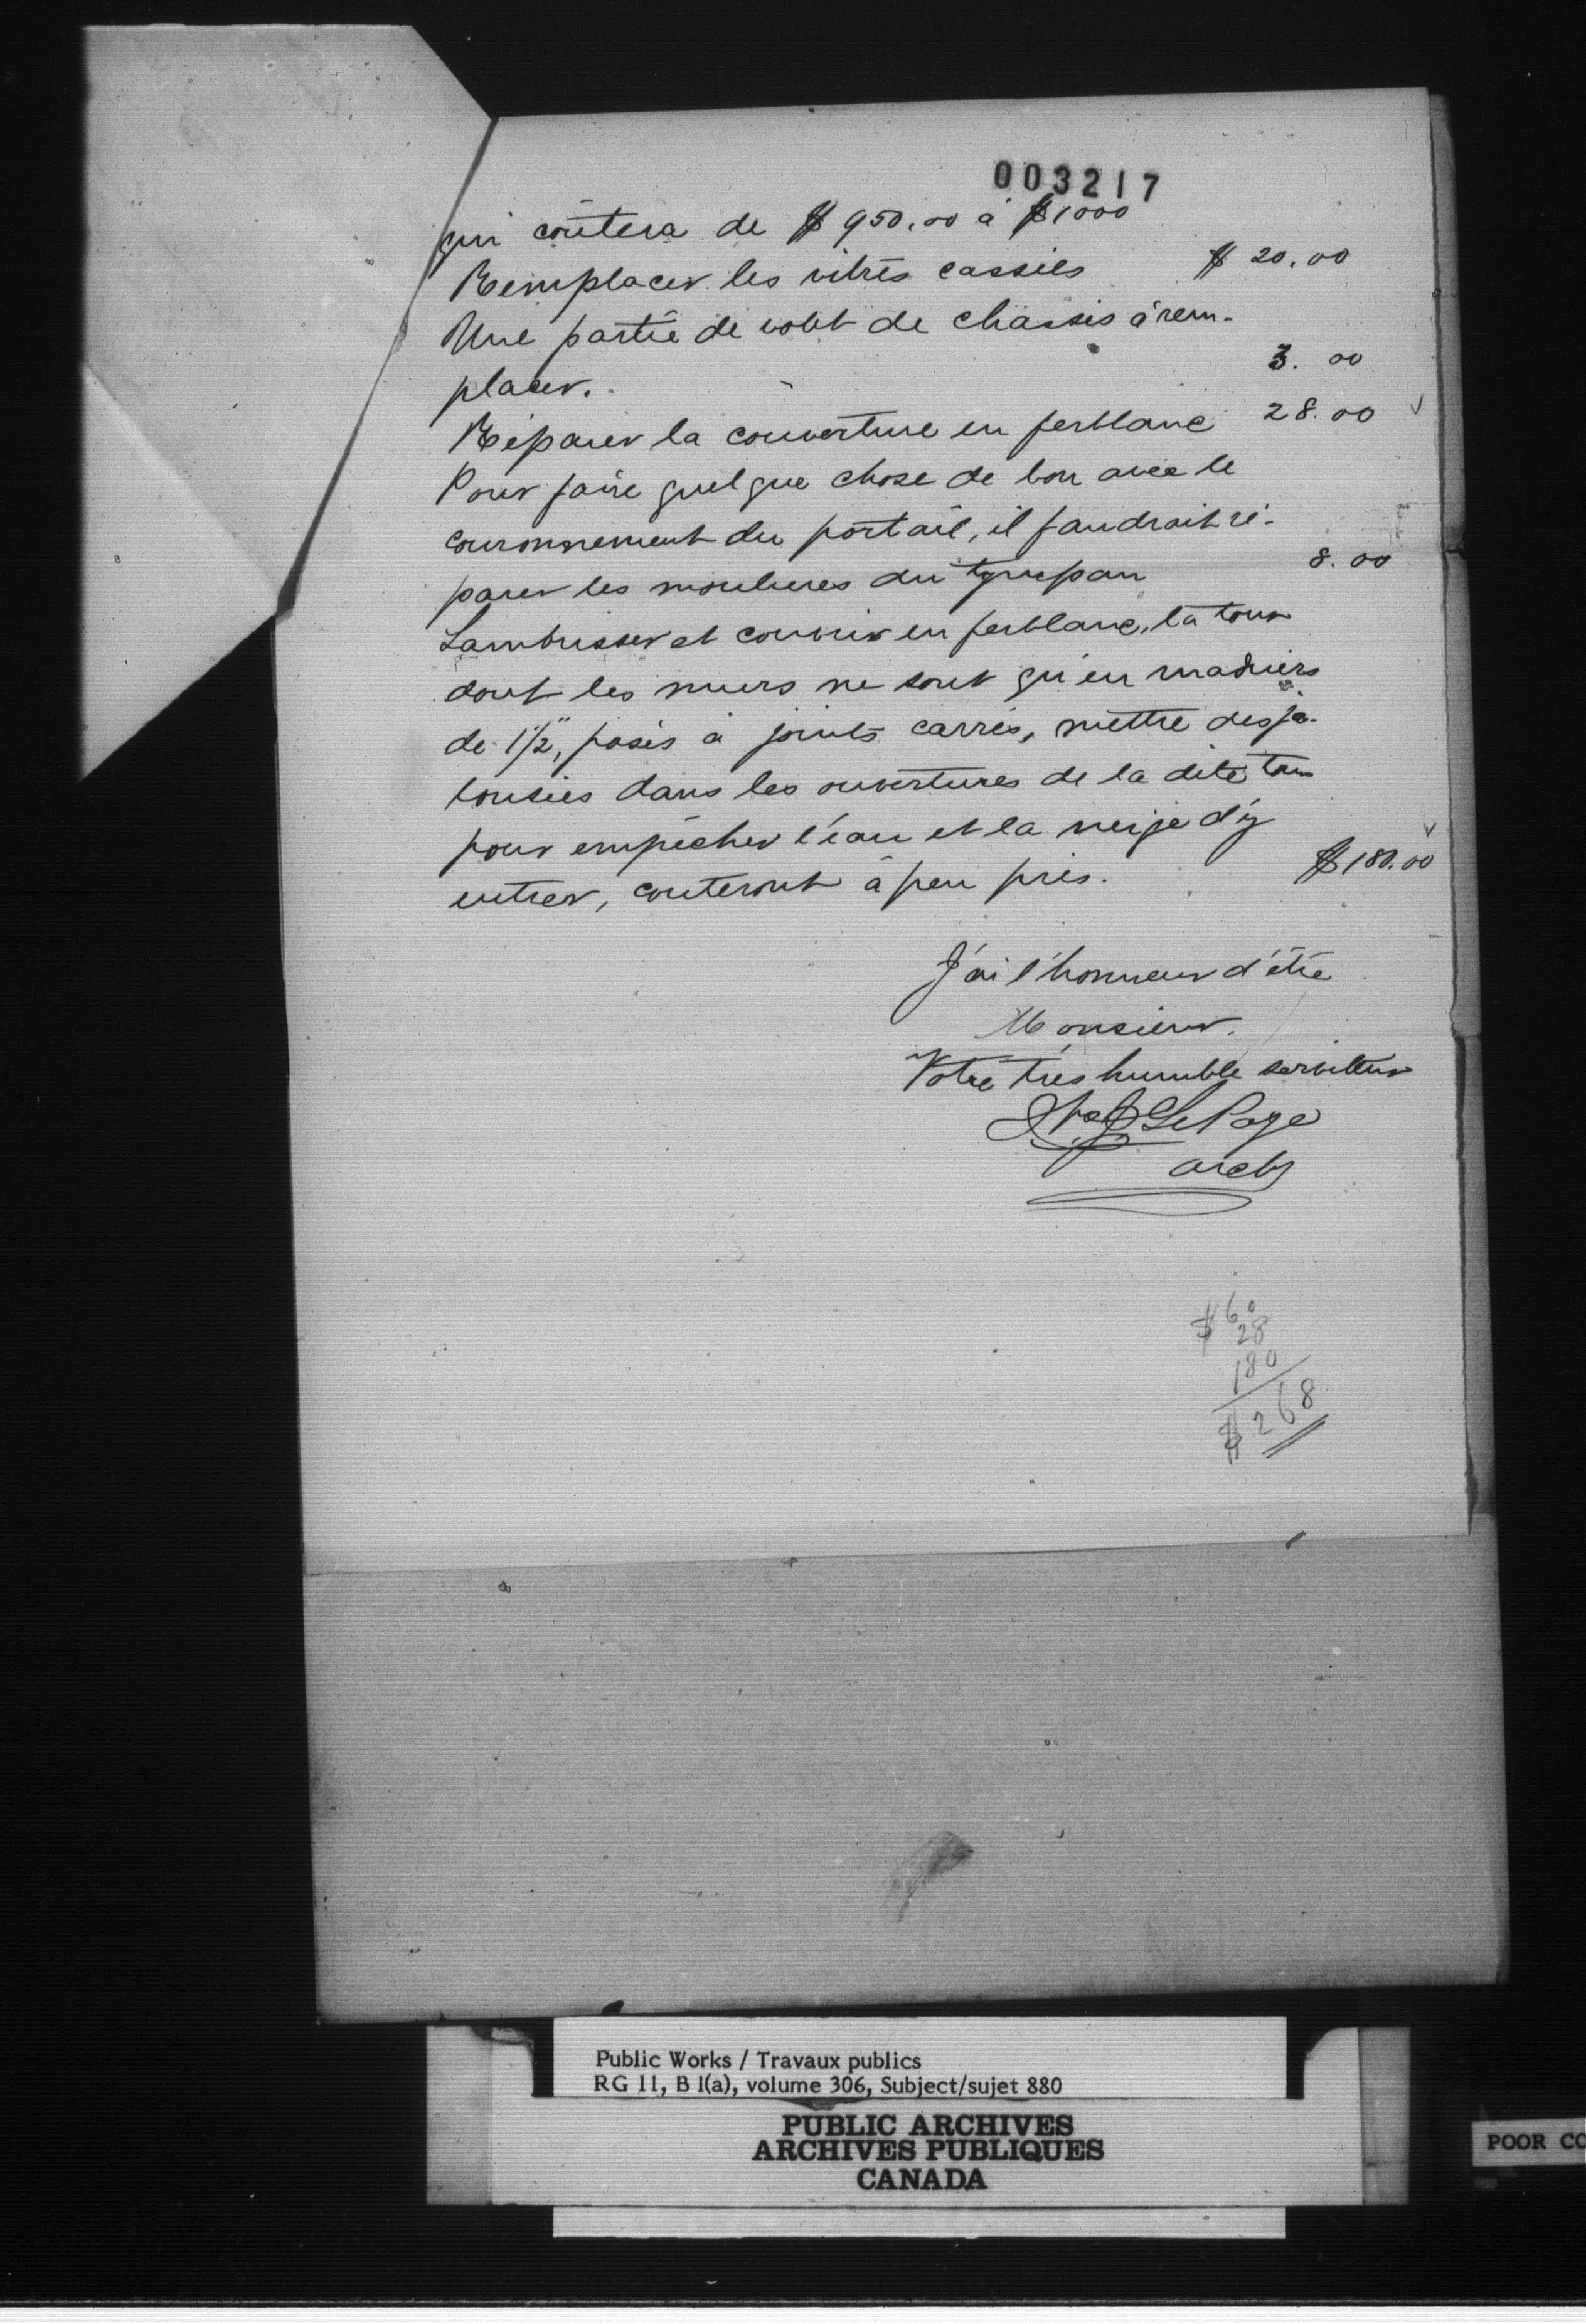 003217
qui coûtera de $950.00 à $1000
Remplacer les vitres cassées $ 20.00
Une partie de volet de chassis à rem-
placer. 3.00
Réparer la couverture en ferblanc 28.00 √
Pour faire quelque chose de bon avec le
couronnement du portail, il faudrait ré-
parer les moulures du tympan 8.00
Lambrisser et couvrir en ferblanc, la tour
dont les murs ne sont qu'en madriers
de 1½", posés à joints carrés, mettre des ja-
lousies dans les ouvertures de la dite tour
pour empêcher l'eau et la neige d'y
entrer, couteront à peu près. $180.00 √
J'ai l'honneur d'être
Monsieur.
Votre très humble serviteur
LePage
archt
$ 60
28
180
$ 268
Public Works / Travaux publics
RG 11, B 1(a), volume 306, Subject/sujet 880
PUBLIC ARCHIVES
ARCHIVES PUBLIQUES
CANADA
POOR CO